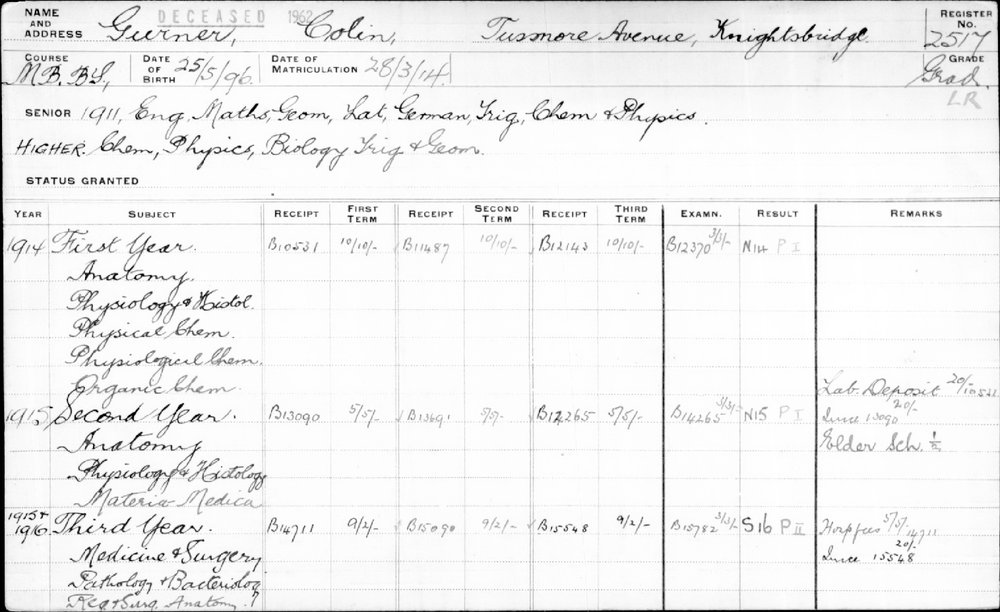 DECEASED 1962
NAME AND ADDRESS Gurner, Colin, Tusmore Avenue, Knightsbridge. REGISTER No. 2517
COURSE M.B. B.S., DATE OF BIRTH 25/5/96. DATE OF MATRICULATION 28/3/14. GRADE Grad.
LR
SENIOR 1911, Eng, Maths, Geom, Lat, German, Trig, Chem & Physics.
HIGHER. Chem, Physics, Biology Trig & Geom.
STATUS GRANTED
YEAR SUBJECT RECEIPT FIRST TERM RECEIPT SECOND TERM RECEIPT THIRD TERM EXAMN. RESULT REMARKS
1914 First Year. B10531 10/10/- B11487 10/10/- B12143 10/10/- B12370 3/3/- N14 P I
Anatomy.
Physiology & Histol.
Physical Chem.
Physiological Chem.
Organic Chem. Lab. Deposit 20/- 10531
1915 Second Year. B13090 5/5/- B13691 5/5/- B12265 5/5/- B14265 3/3/- N15 P I 20/- 13090
Anatomy Elder Sch. 1/2
Physiology & Histology
Materia Medica
1915 & 1916 Third Year. B14711 9/2/- B15090 9/2/- B15548 9/2/- B15782 3/3/- S16 P II 5/5/- 14711
Medicine & Surgery 20/- 15548
Pathology & Bacteriolog
Reg & Surg. Anatomy.